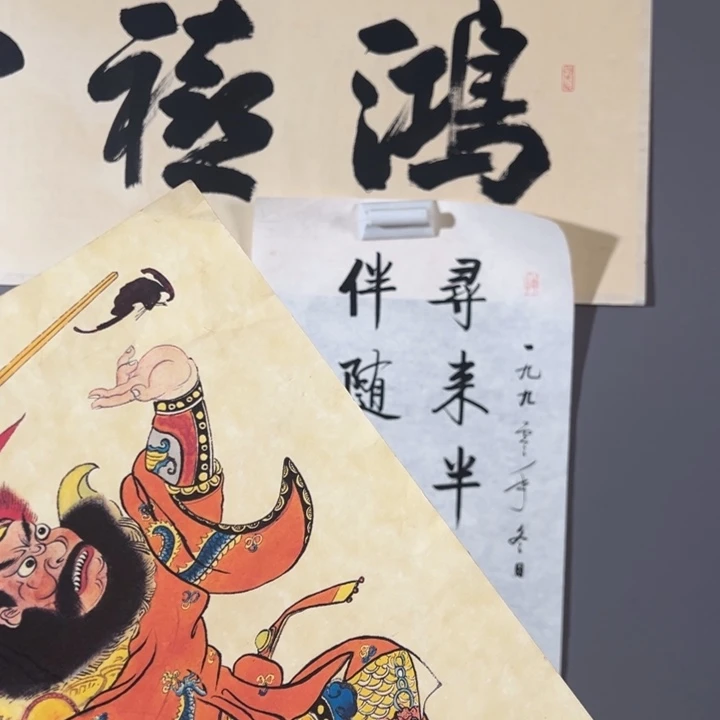 鴻禧
一九九零年冬日
尋来半
伴随